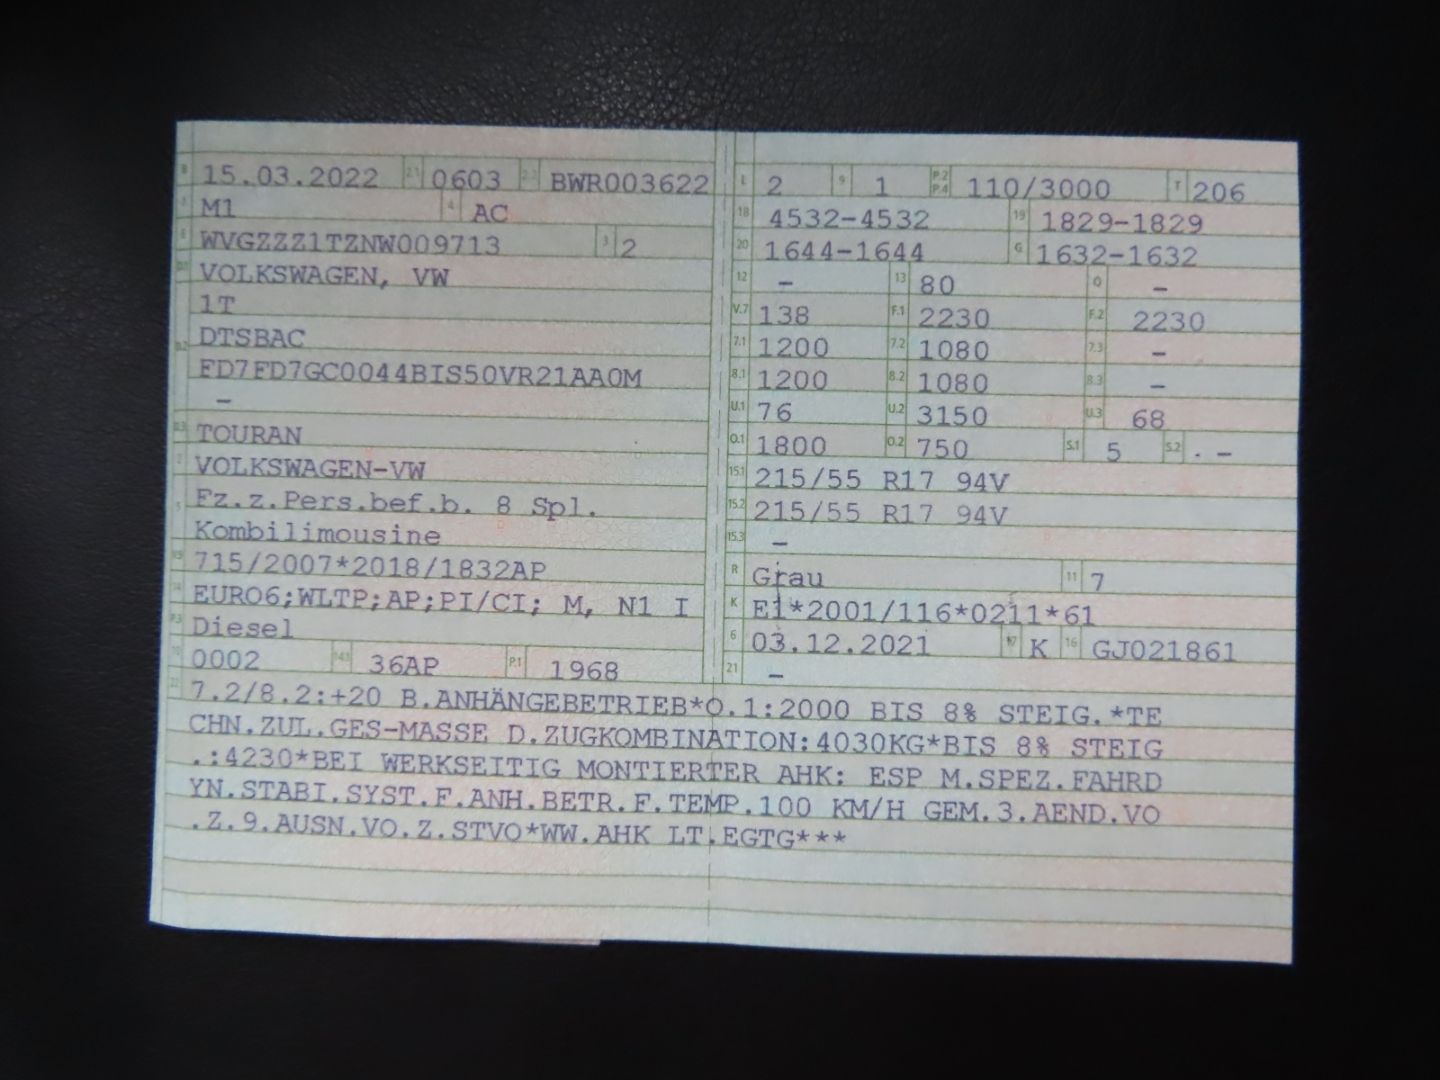 B 15.03.2022 2.1 0603 2.2 BWR003622
J M1 4 AC
E WVGZZZ1TZNW009713 3 2
D.1 VOLKSWAGEN, VW
1T
D.2 DTSBAC
FD7FD7GC0044BIS50VR21AA0M
-
D.3 TOURAN
2 VOLKSWAGEN-VW
5 Fz.z.Pers.bef.b. 8 Spl.
Kombilimousine
V.9 715/2007*2018/1832AP
14 EURO6;WLTP;AP;PI/CI; M, N1 I
P.3 Diesel
10 0002 14.1 36AP P.1 1968
L 2 9 1 P.2 P.4 110/3000 T 206
18 4532-4532 19 1829-1829
20 1644-1644 G 1632-1632
12 - 13 80 Q -
V.7 138 F.1 2230 F.2 2230
7.1 1200 7.2 1080 7.3 -
8.1 1200 8.2 1080 8.3 -
U.1 76 U.2 3150 U.3 68
O.1 1800 O.2 750 S.1 5 S.2 -
15.1 215/55 R17 94V
15.2 215/55 R17 94V
15.3 -
R Grau 11 7
K E1*2001/116*0211*61
6 03.12.2021 17 K 16 GJ021861
21 -
22 7.2/8.2:+20 B.ANHÄNGEBETRIEB*O.1:2000 BIS 8% STEIG.*TE
CHN.ZUL.GES-MASSE D.ZUGKOMBINATION:4030KG*BIS 8% STEIG
.:4230*BEI WERKSEITIG MONTIERTER AHK: ESP M.SPEZ.FAHRD
YN.STABI.SYST.F.ANH.BETR.F.TEMP.100 KM/H GEM.3.AEND.VO
.Z.9.AUSN.VO.Z.STVO*WW.AHK LT.EGTG***